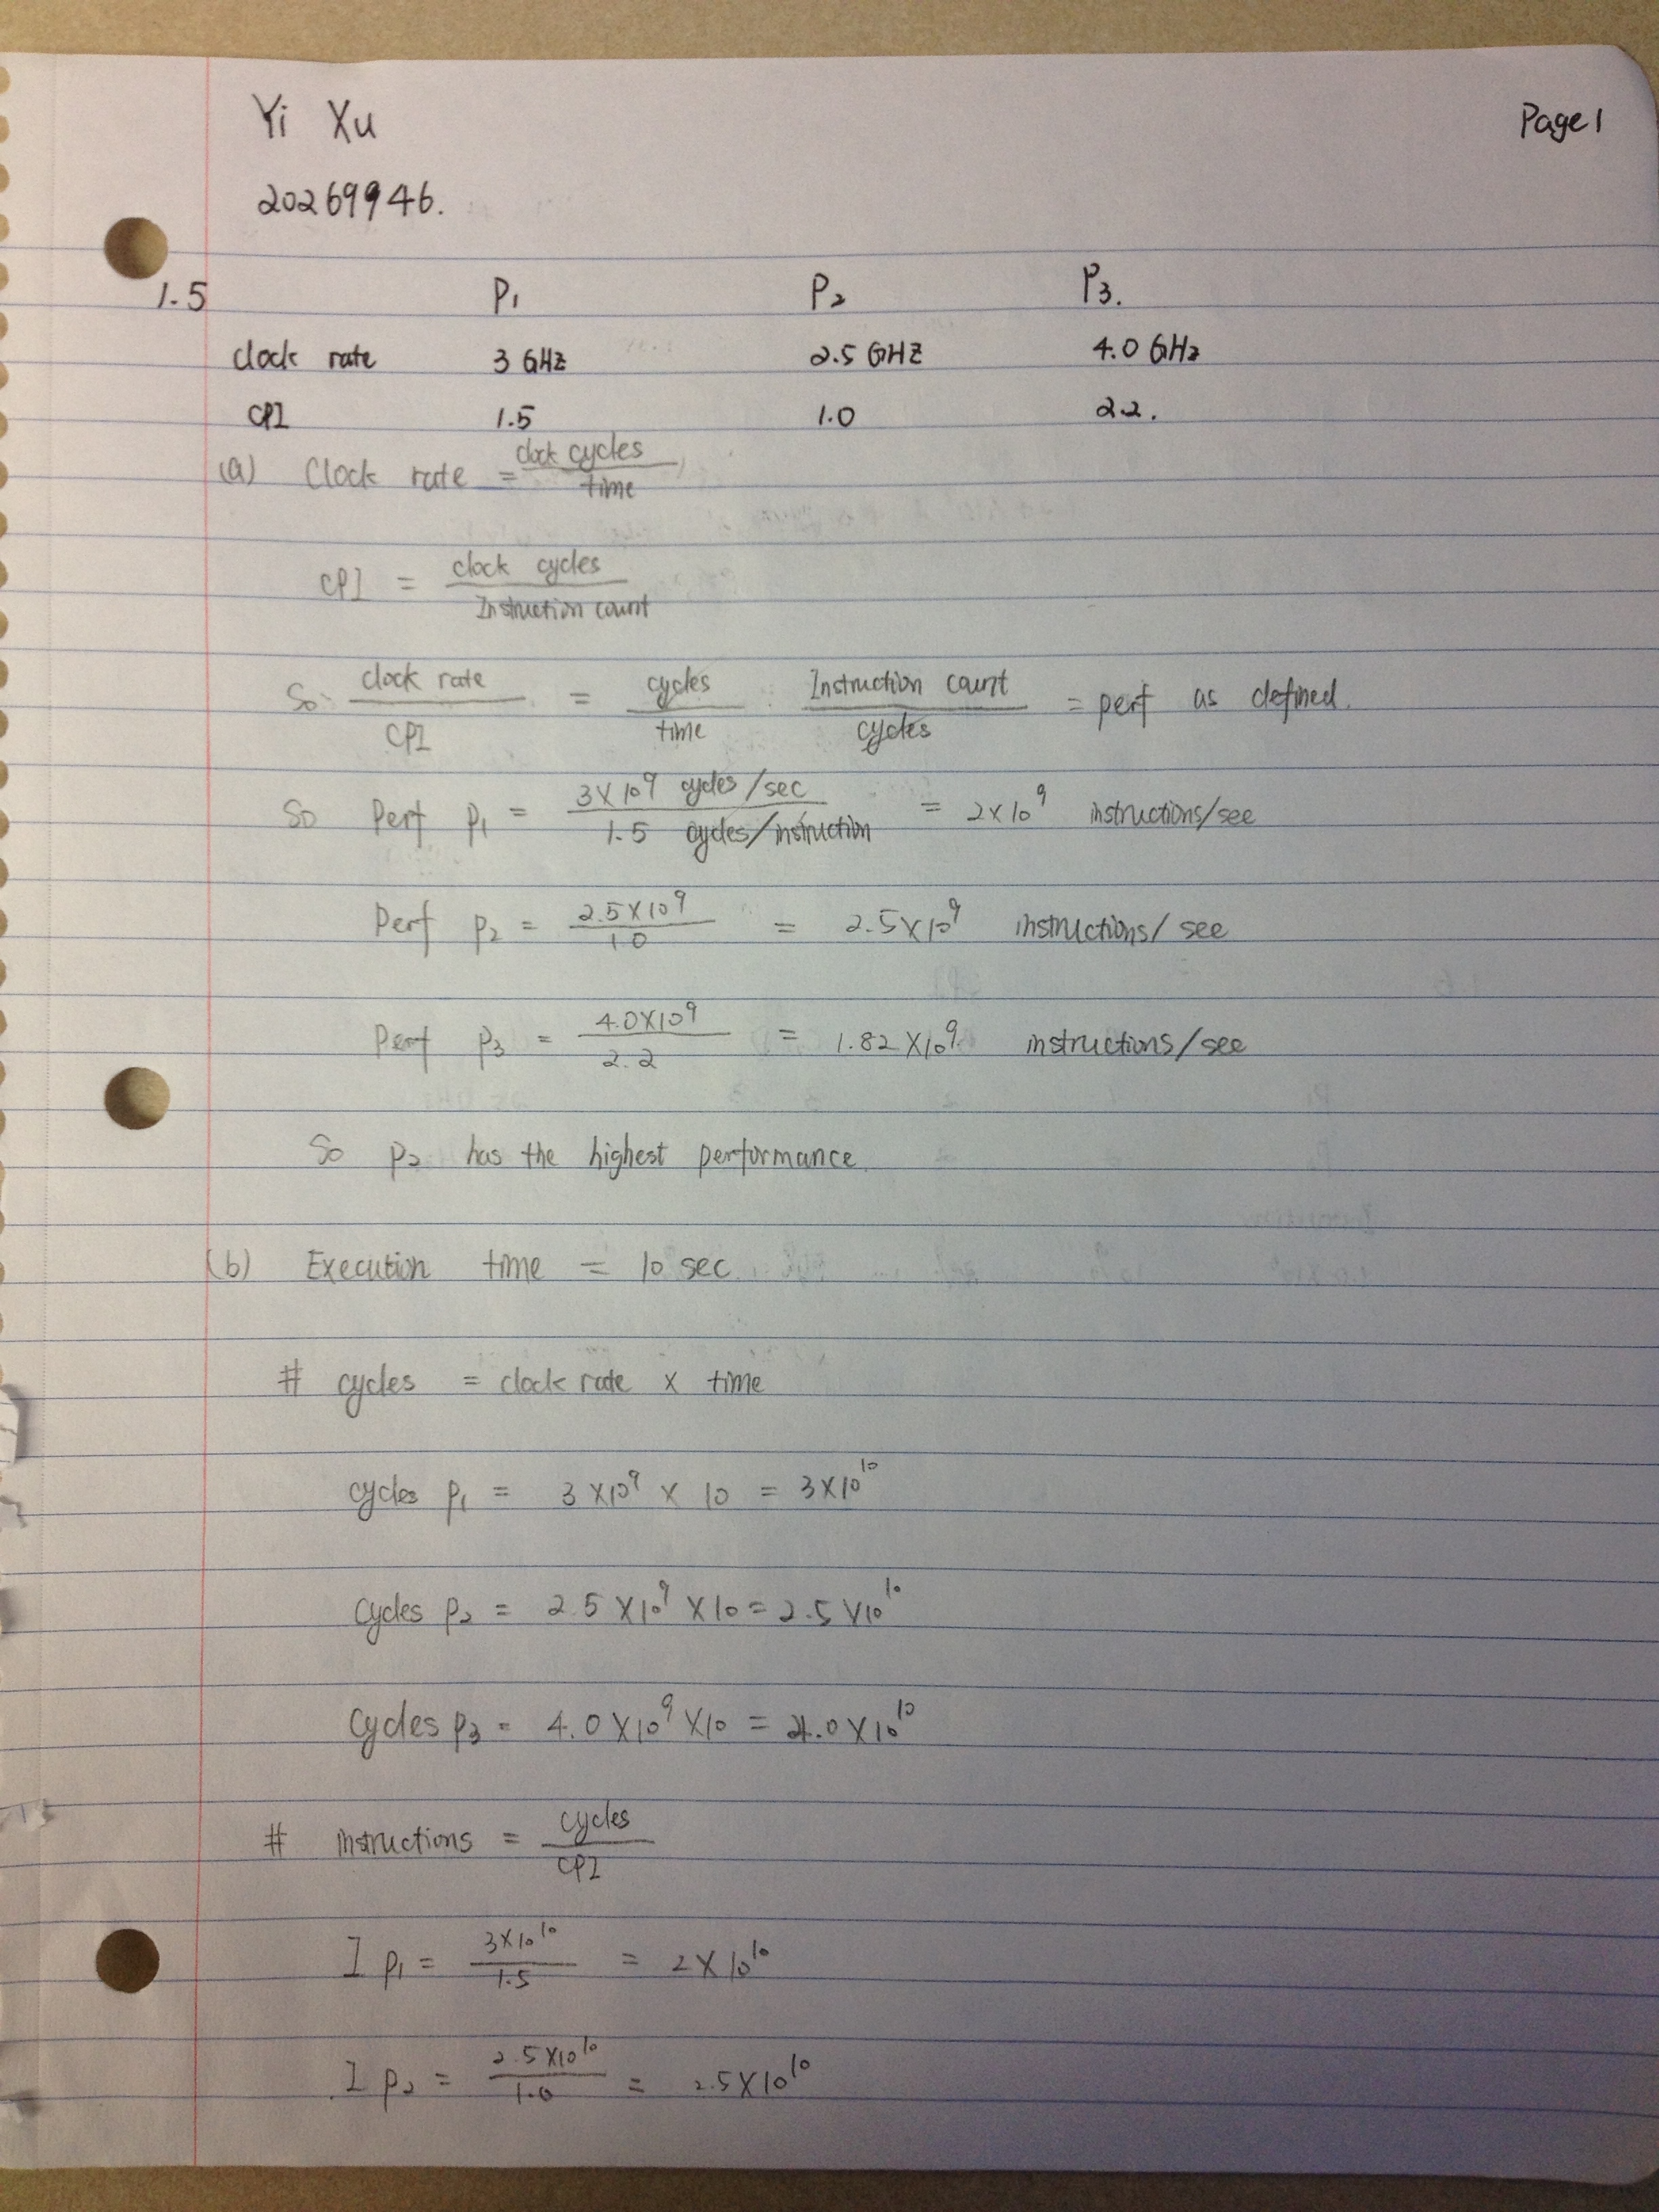 Yi Xu Page 1
20269946.
1.5 P₁ P₂ P₃.
clock rate 3 GHz 2.5 GHz 4.0 GHz
CPI 1.5 1.0 2.2.
(a) Clock rate = clock cycles / time
CPI = clock cycles / Instruction count
So clock rate / CPI = cycles / time · Instruction count / cycles = perf as defined.
So Perf P₁ = 3×10⁹ cycles/sec / 1.5 cycles/instruction = 2×10⁹ instructions/sec
Perf P₂ = 2.5×10⁹ / 1.0 = 2.5×10⁹ instructions/sec
Perf P₃ = 4.0×10⁹ / 2.2 = 1.82×10⁹ instructions/sec
So P₂ has the highest performance.
(b) Execution time = 10 sec.
# cycles = clock rate × time
cycles P₁ = 3×10⁹ × 10 = 3×10¹⁰
cycles P₂ = 2.5×10⁹ ×10 = 2.5×10¹⁰
cycles P₃ = 4.0×10⁹×10 = 4.0×10¹⁰
# instructions = cycles / CPI
I P₁ = 3×10¹⁰ / 1.5 = 2×10¹⁰
I P₂ = 2.5×10¹⁰ / 1.0 = 2.5×10¹⁰